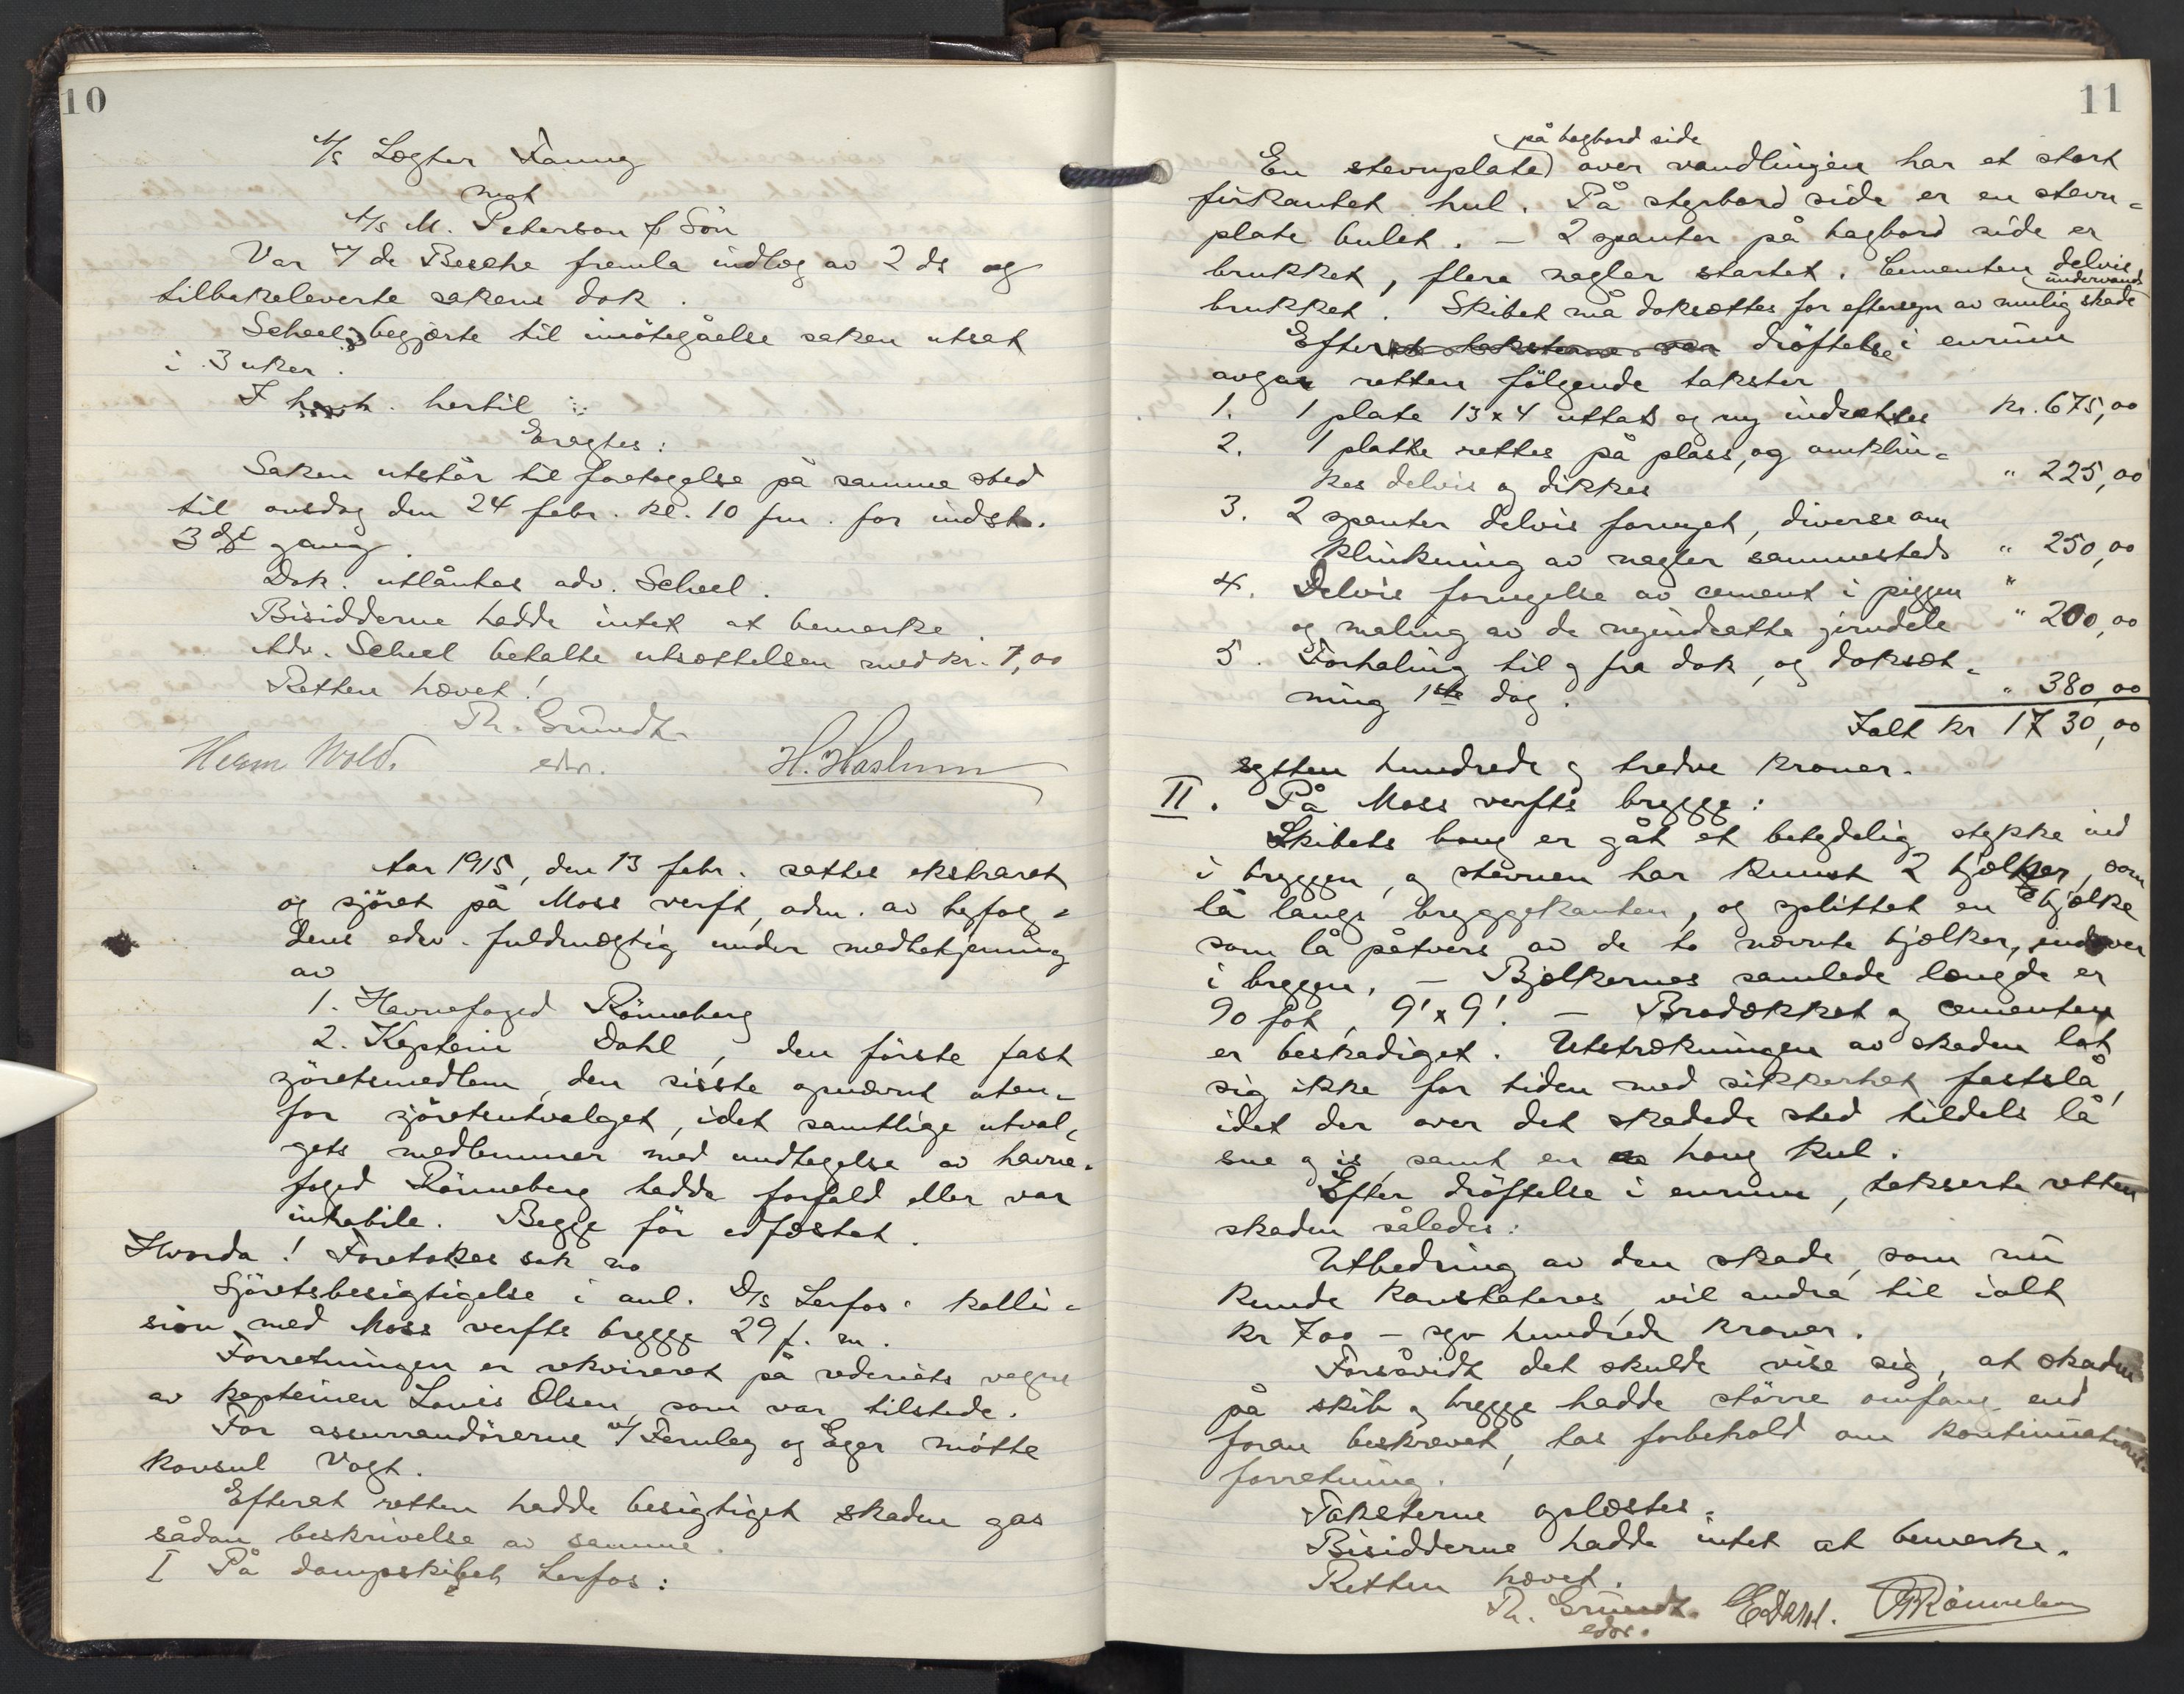 10
A/s Lægter Fanny
mot
A/s M. Peterson & Sön
Var v/ de Besche fremla indlæg av 2 ds og
tilbakeleverte sakens dok.
Scheel begjærte til imötegåelse saken utsat
i 3 uker.
I henh. hertil
Eragtes:
Saken utstår til foretagelse på samme sted
til onsdag den 24 febr. kl. 10 fm. for indst.
3dje gang.
Dok. utlåntes adv. Scheel.
Bisidderne hadde intet at bemerke.
Adv. Scheel betalte utsættelsen med kr. 7,00
Retten hævet!
Th. Grundt
Herm Wold. edsv. H. Haslum
Aar 1915, den 13 febr. sattes ekstraret
og sjöret på Moss verft, adm. av byfog-
dens edsv. fuldmægtig under medbetjening
av
1. Havnefoged Rönneberg
2. Kaptein Dahl, den förste fast
sjöretsmedlem, den sisste opnævnt uten-
for sjöretsutvalget, idet samtlige utval-
gets medlemmer med undtagelse av havne-
foged Rönneberg hadde forfald eller var
inhabile. Begge för edfæstet.
Hvorda! Foretokes sak no
Sjöretsbesigtigelse i anl. D/s Lerfos' kolli-
sion med Moss verfts brygge 29 f. m.
Forretningen er rekvireret på rederiets vegne
av kapteinen Louis Olsen, som var tilstede.
For assurandörerne v/ Fernley og Eger mötte
konsul Vogt.
Efterat retten hadde besigtiget skaden gas
sådan beskrivelse av samme.
I På dampskibet Lerfos:
11
på bagbord side
En stevnplate over vandlinjen har et stort
firkantet hul. På styrbord side er en stevn-
plate bulet. – 2 spanter på bagbord side er
brukket, flere nagler startet. Cementen delvis
undervands
brukket. Skibet må doksættes for eftersyn av mulig skade
Efter at takstene var dröftelse i enrum
avgav retten fölgende takster
1. 1 plate 13 x 4 uttas og ny indsættes kr. 675,00
2. 1 platte rettes på plass, og omklin-
kes delvis og dikkes " 225,00
3. 2 spanter delvis fornyet, diverse om
klinkning av nagler sammesteds " 250,00
4. Delvis fornyelse av cement i piggen "
og maling av de nyindsatte jerndele " 200,00
5. Forhaling til og fra dok, og doksæt-
ning 1ste dag. " 380,00
Ialt kr 1730,00
sytten hundrede og tredve kroner.
II. På Moss verfts brygge:
Skibets baug er gåt et betydelig stykke ind
i bryggen, og stevnen har knust 2 bjælker, som
lå langs bryggekanten, og splittet en bjælke
som lå påtvers av de to nævnte bjælker, indover
i bryggen. – Bjælkernes samlede længde er
90 fot, 9' x 9'. – Brodækket og cementen
er beskadiget. Utstrækningen av skaden lot
sig ikke for tiden med sikkerhet fastslå,
idet der over det skadede sted tildels lå
sne og is, samt en haug kul.
Efter dröftelse i enrum, takserte retten
skaden således:
Utbedring av den skade, som nu
kunde konstateres, vil andra til ialt
kr 700 – syv hundrede kroner.
Forsåvidt det skulde vise sig, at skaden
på skib og brygge hadde större omfang end
foran beskrevet, tas forbehold om kontinuations-
forretning.
Taksterne oplæstes.
Bisidderne hadde intet at bemerke.
Retten hævet.
Th. Grundt. E Dahl. Rönneberg
edsv.